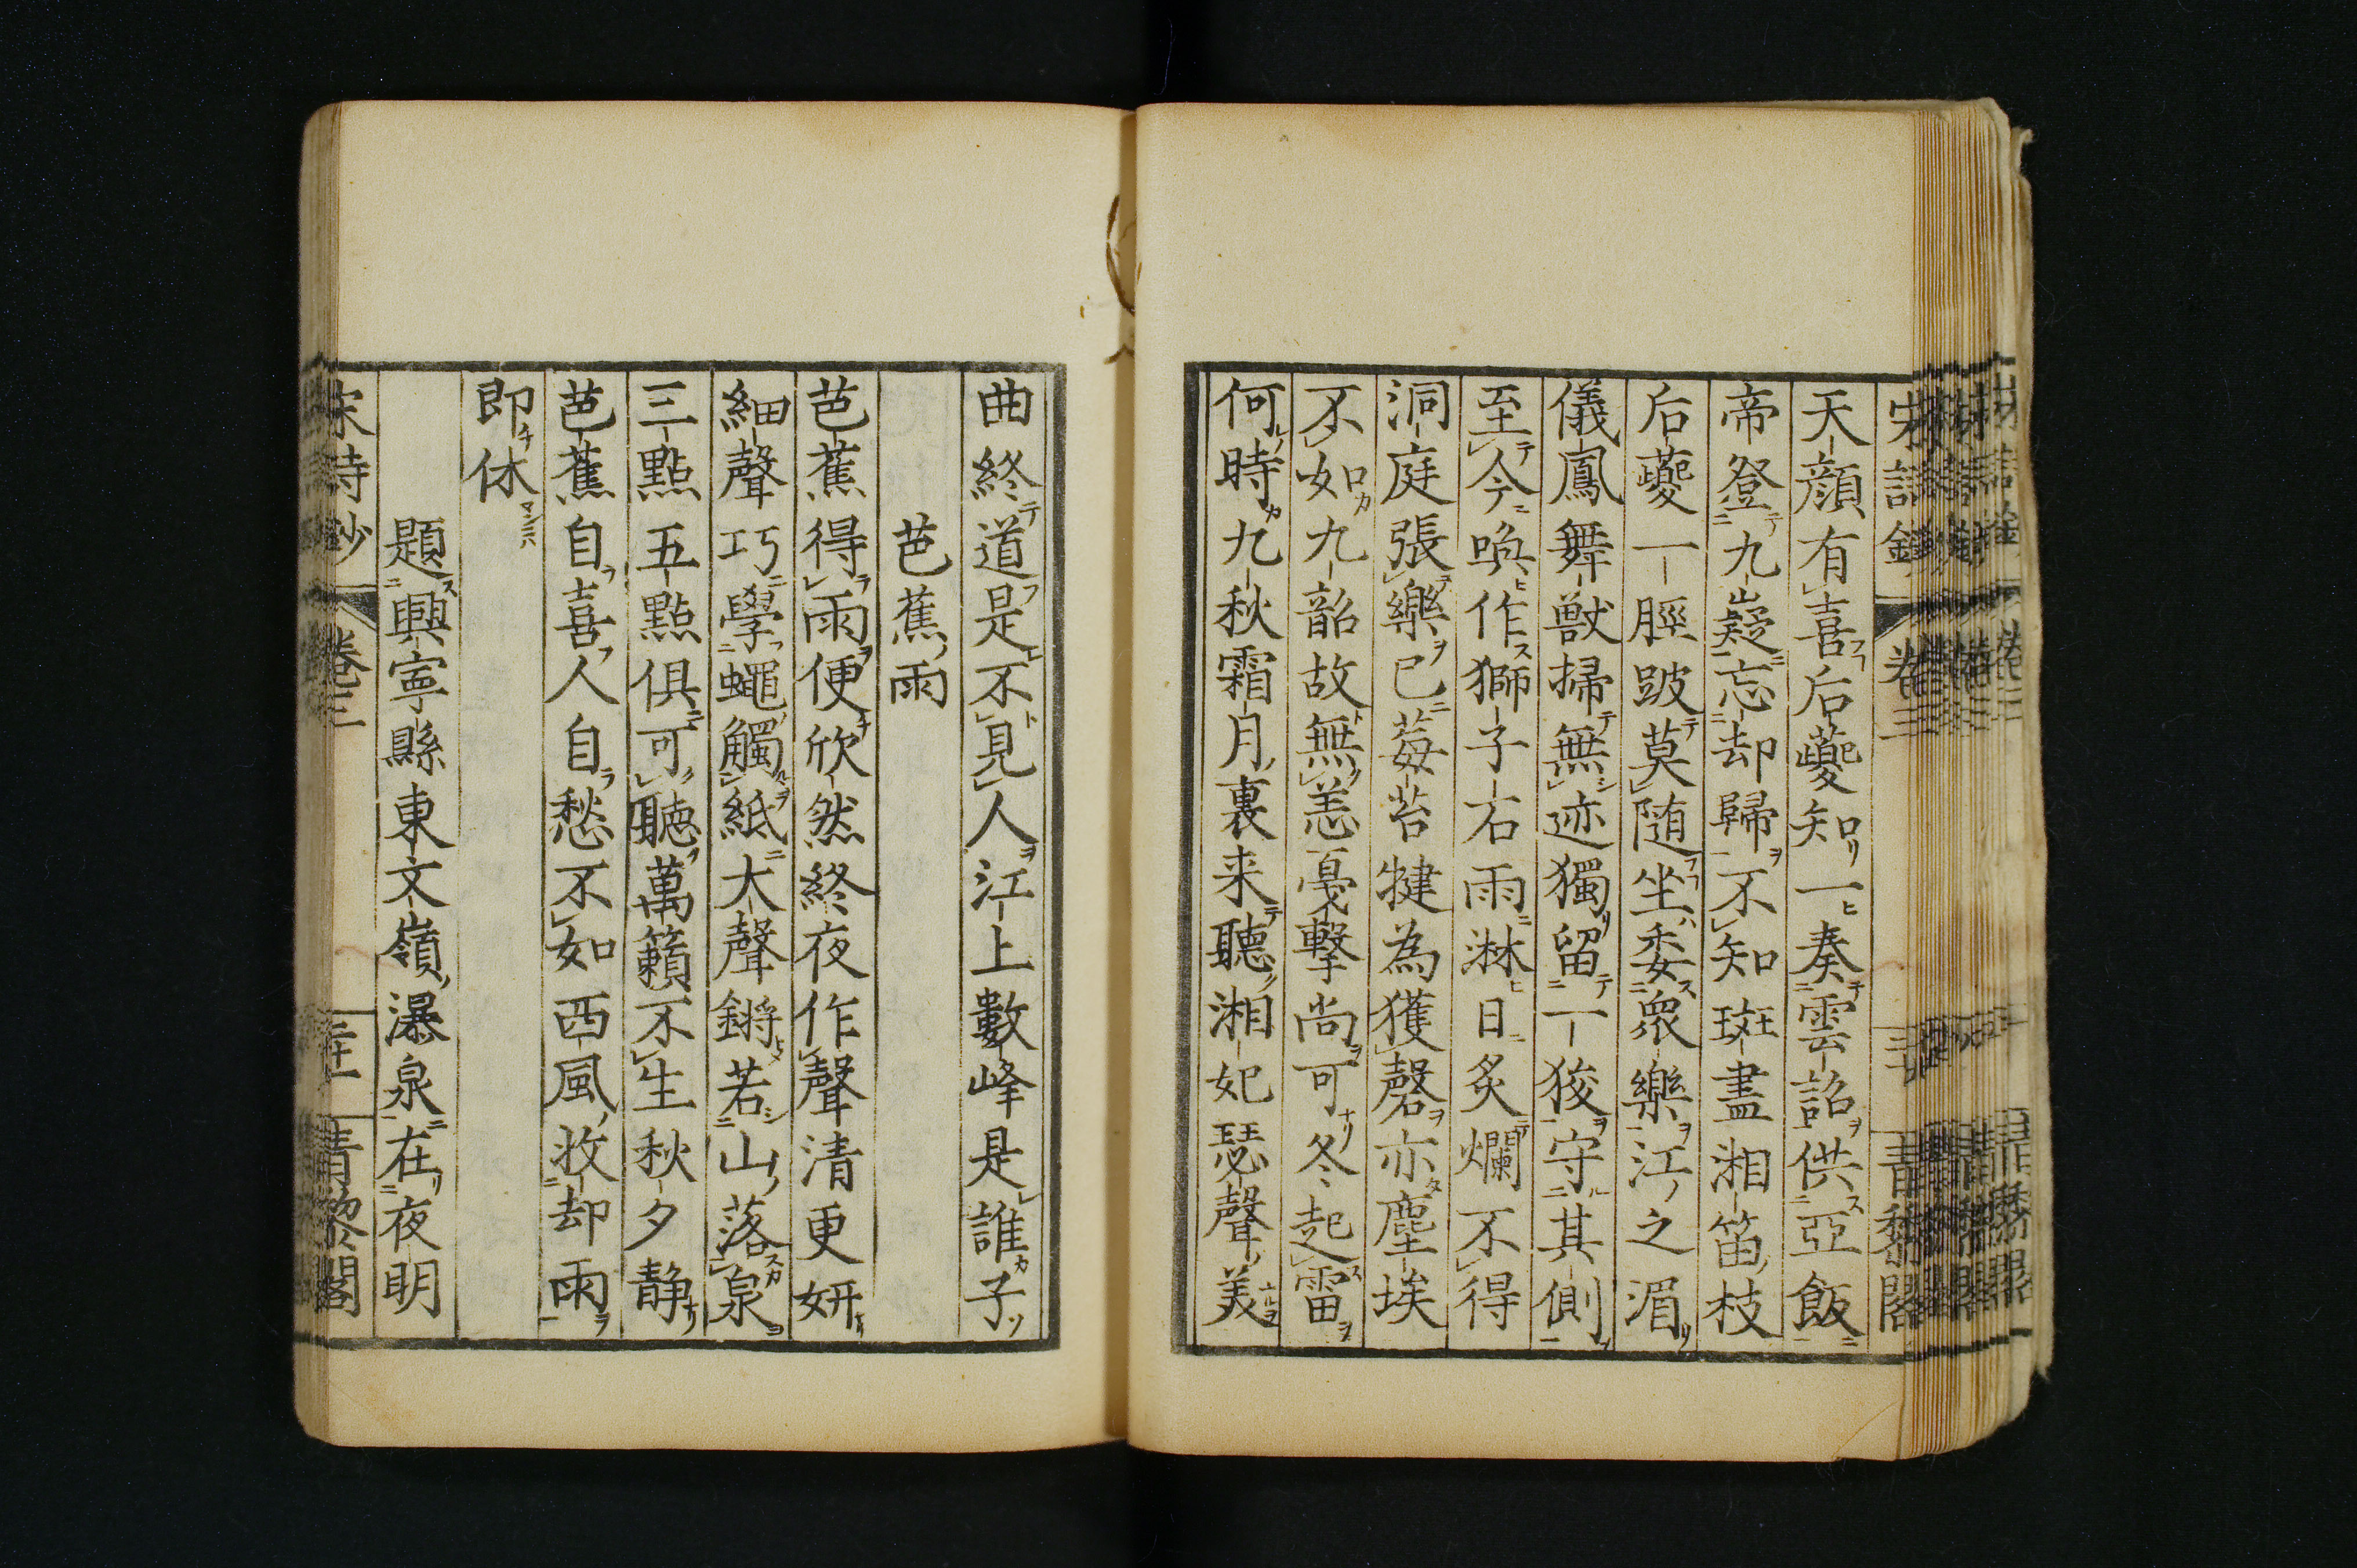 天顔有喜后夔知一奏雲韶供亞飯
帝登九疑忘却歸不知斑盡湘笛枝
后夔一脛跛莫随坐委衆樂江之湄
儀鳳舞獣掃無迹獨留一狻守其側
至今喚作獅子石雨淋日炙爛不得
洞庭張樂已莓苔犍為獲磬亦塵埃
不如九韶故無恙戞撃尚可冬起雷
何時九秋霜月裏来聽湘妃瑟聲美
曲終道是不見人江上數峰是誰子
芭蕉雨
芭蕉得雨便欣然終夜作聲清更妍
細聲巧學蠅觸紙大聲鏘若山落泉
三點五點俱可聽萬籟不生秋夕静
芭蕉自喜人自愁不如西風收却雨
即休
題興寧縣東文嶺瀑泉在夜明
宋詩鈔 卷三 青黎閣